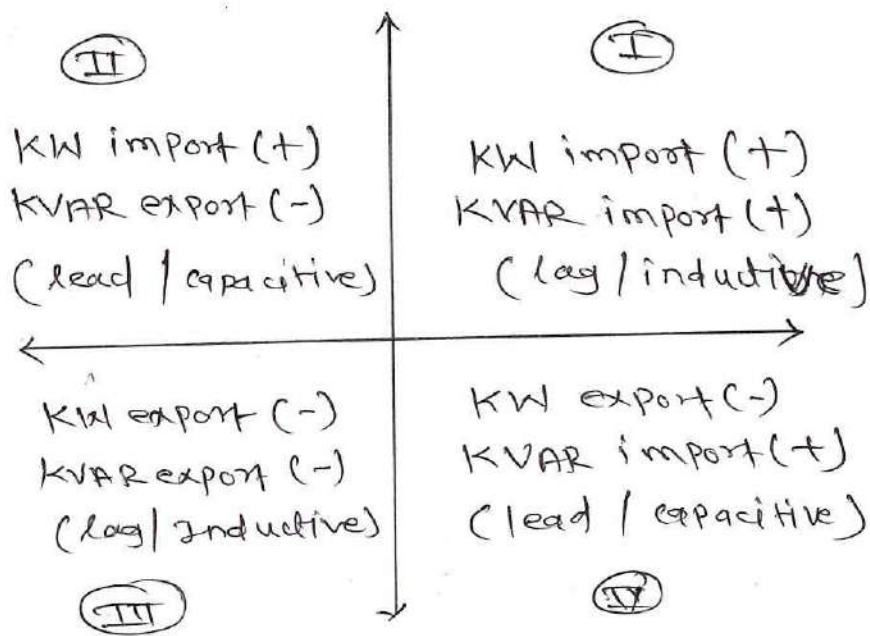 II
KW import (+)
KVAR export (-)
(lead / capacitive)
I
KW import (+)
KVAR import (+)
(lag / inductive)
KW export (-)
KVAR export (-)
(lag / Inductive)
III
KW export (-)
KVAR import (+)
(lead / capacitive)
IV